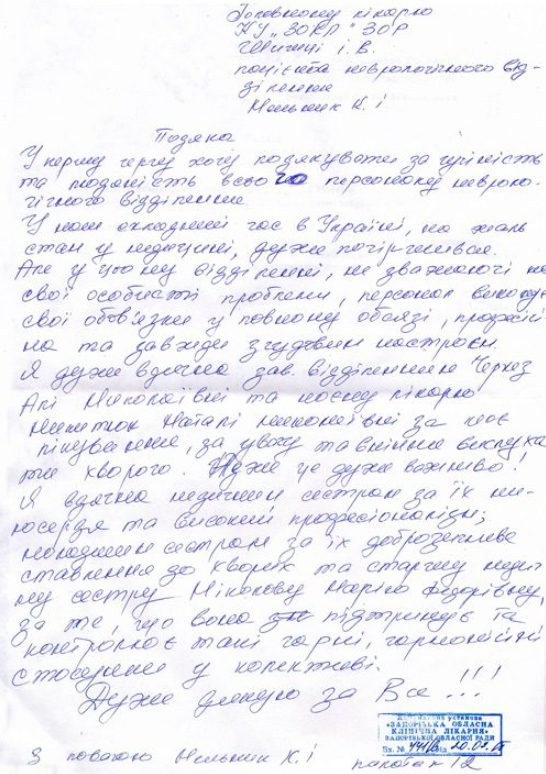 Головному лікарю
КУ „ЗОКЛ" ЗОР
Шишці І. В.
пацієнта неврологічного від-
ділення
Мельник К. І
Подяка
У першу чергу хочу подякувати за чуйність
та людяність всього персоналу невроло-
гічного відділення.
У наш складний час в Україні, на жаль
стан у медицині, дуже погіршився.
Але у цьому відділенні, не зважаючі на
свої особисті проблеми, персонал виконує
свої обов'язки у повному обсязі, професій
но та завжди з чудовим настроєм.
Я дуже вдячна зав. відділенням Черкез
Аллі Миколаївні та моєму лікарю
Наталі Миколаївні за моє
лікування, за увагу та вміння вислуха
ти хворого. Адже це дуже важливо!
Я вдячна медичним сестрам за їх ми-
лосердя та високий професіоналізм;
молодшим сестрам за їх доброзичливе
ставлення до хворих та старшу медич
ну сестру Марію Федорівну,
за те, що вона підтримує та
контролює такі гарні, гармонійні
стосунки у колективі.
Дуже дякую за Все!!!
Комунальна установа
«ЗАПОРІЗЬКА ОБЛАСНА
КЛІНІЧНА ЛІКАРНЯ»
ЗАПОРІЗЬКОЇ ОБЛАСНОЇ РАДИ
Вх. № від 20.03.
З повагою Мельник К. І палата 12